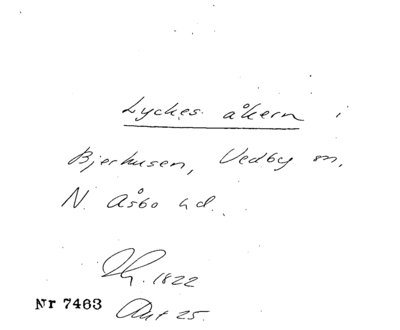 Lyckes åkern i
Bjerhusen, Vedby sn,
N. Åsbo hd.
1822
Nr 7463
Akt 25.